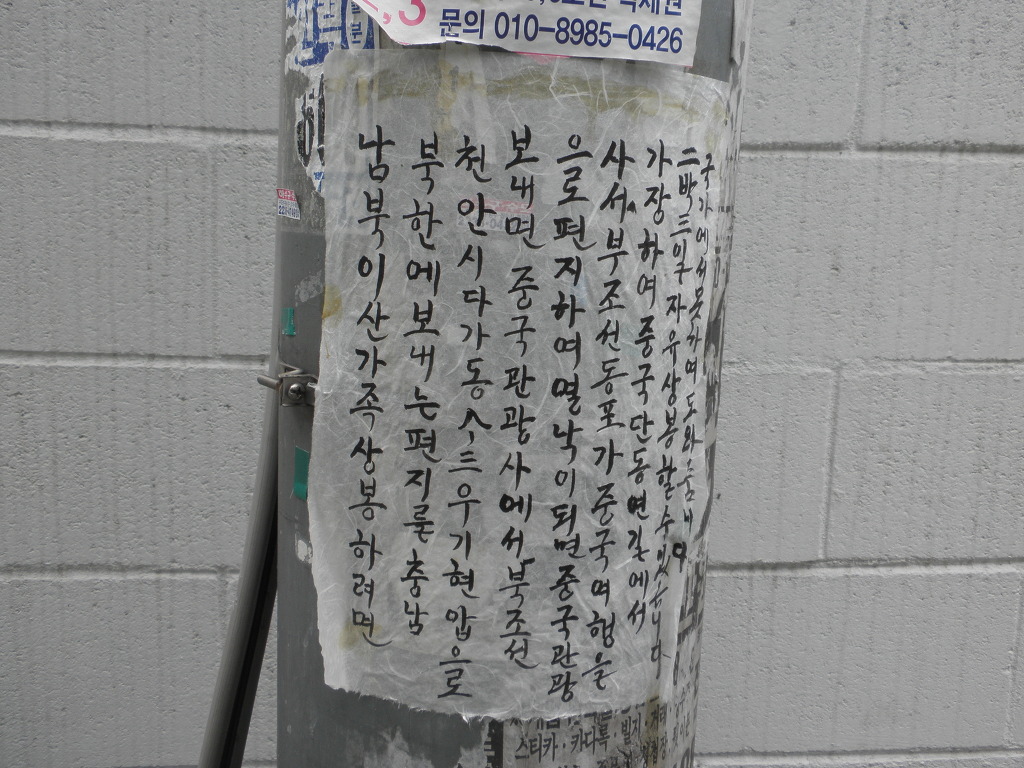 문의 010-8985-0426
남북이산가족상봉하려면
북한에보내는편지를 충남
천안시다가동 우기현압으로
보내면 중국관광사에서 북조선
으로편지하여열낙이되면중국관광
사서 부조선동포가중국여행을
가장하여 중국단동연길에서
三박三일 자유상봉할수있습니다
국가에서못하여도와줌니
스티카·카다록·빌지